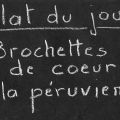 lat du jou
Brochettes
de coeur
la péruvien